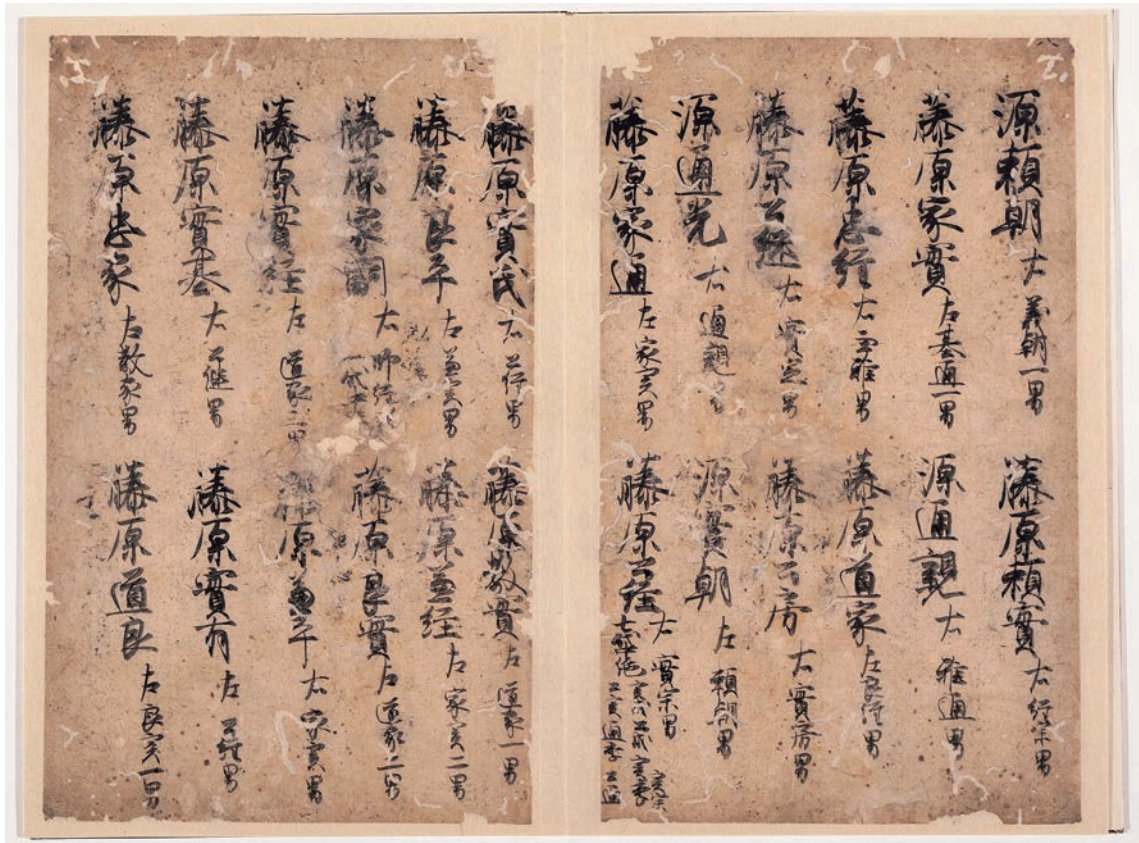 源頼朝 右 義朝一男
藤原頼實 右 経宗男
藤原家實 左 基通一男
源通親 右 雅通男
藤原忠経 右 兼雅男
藤原道家 左 良経男
藤原公継 右 實定男
藤原公房 右 實房男
源通光 右 通親男
源實朝 右 頼朝男
藤原家通 左 家実男
藤原公経 右 實宗男
藤原實氏 右 公経男
藤原教實 左 道家一男
藤原良平 右 兼実男
藤原兼経 左 家実二男
藤原家嗣 右 師経
藤原良實 左 道家二男
藤原實経 左 道家三男
原兼平 右 家実男
藤原實基 右 公継男
藤原實有 左 公経男
藤原忠家 右 教家男
藤原道良 左 良実一男